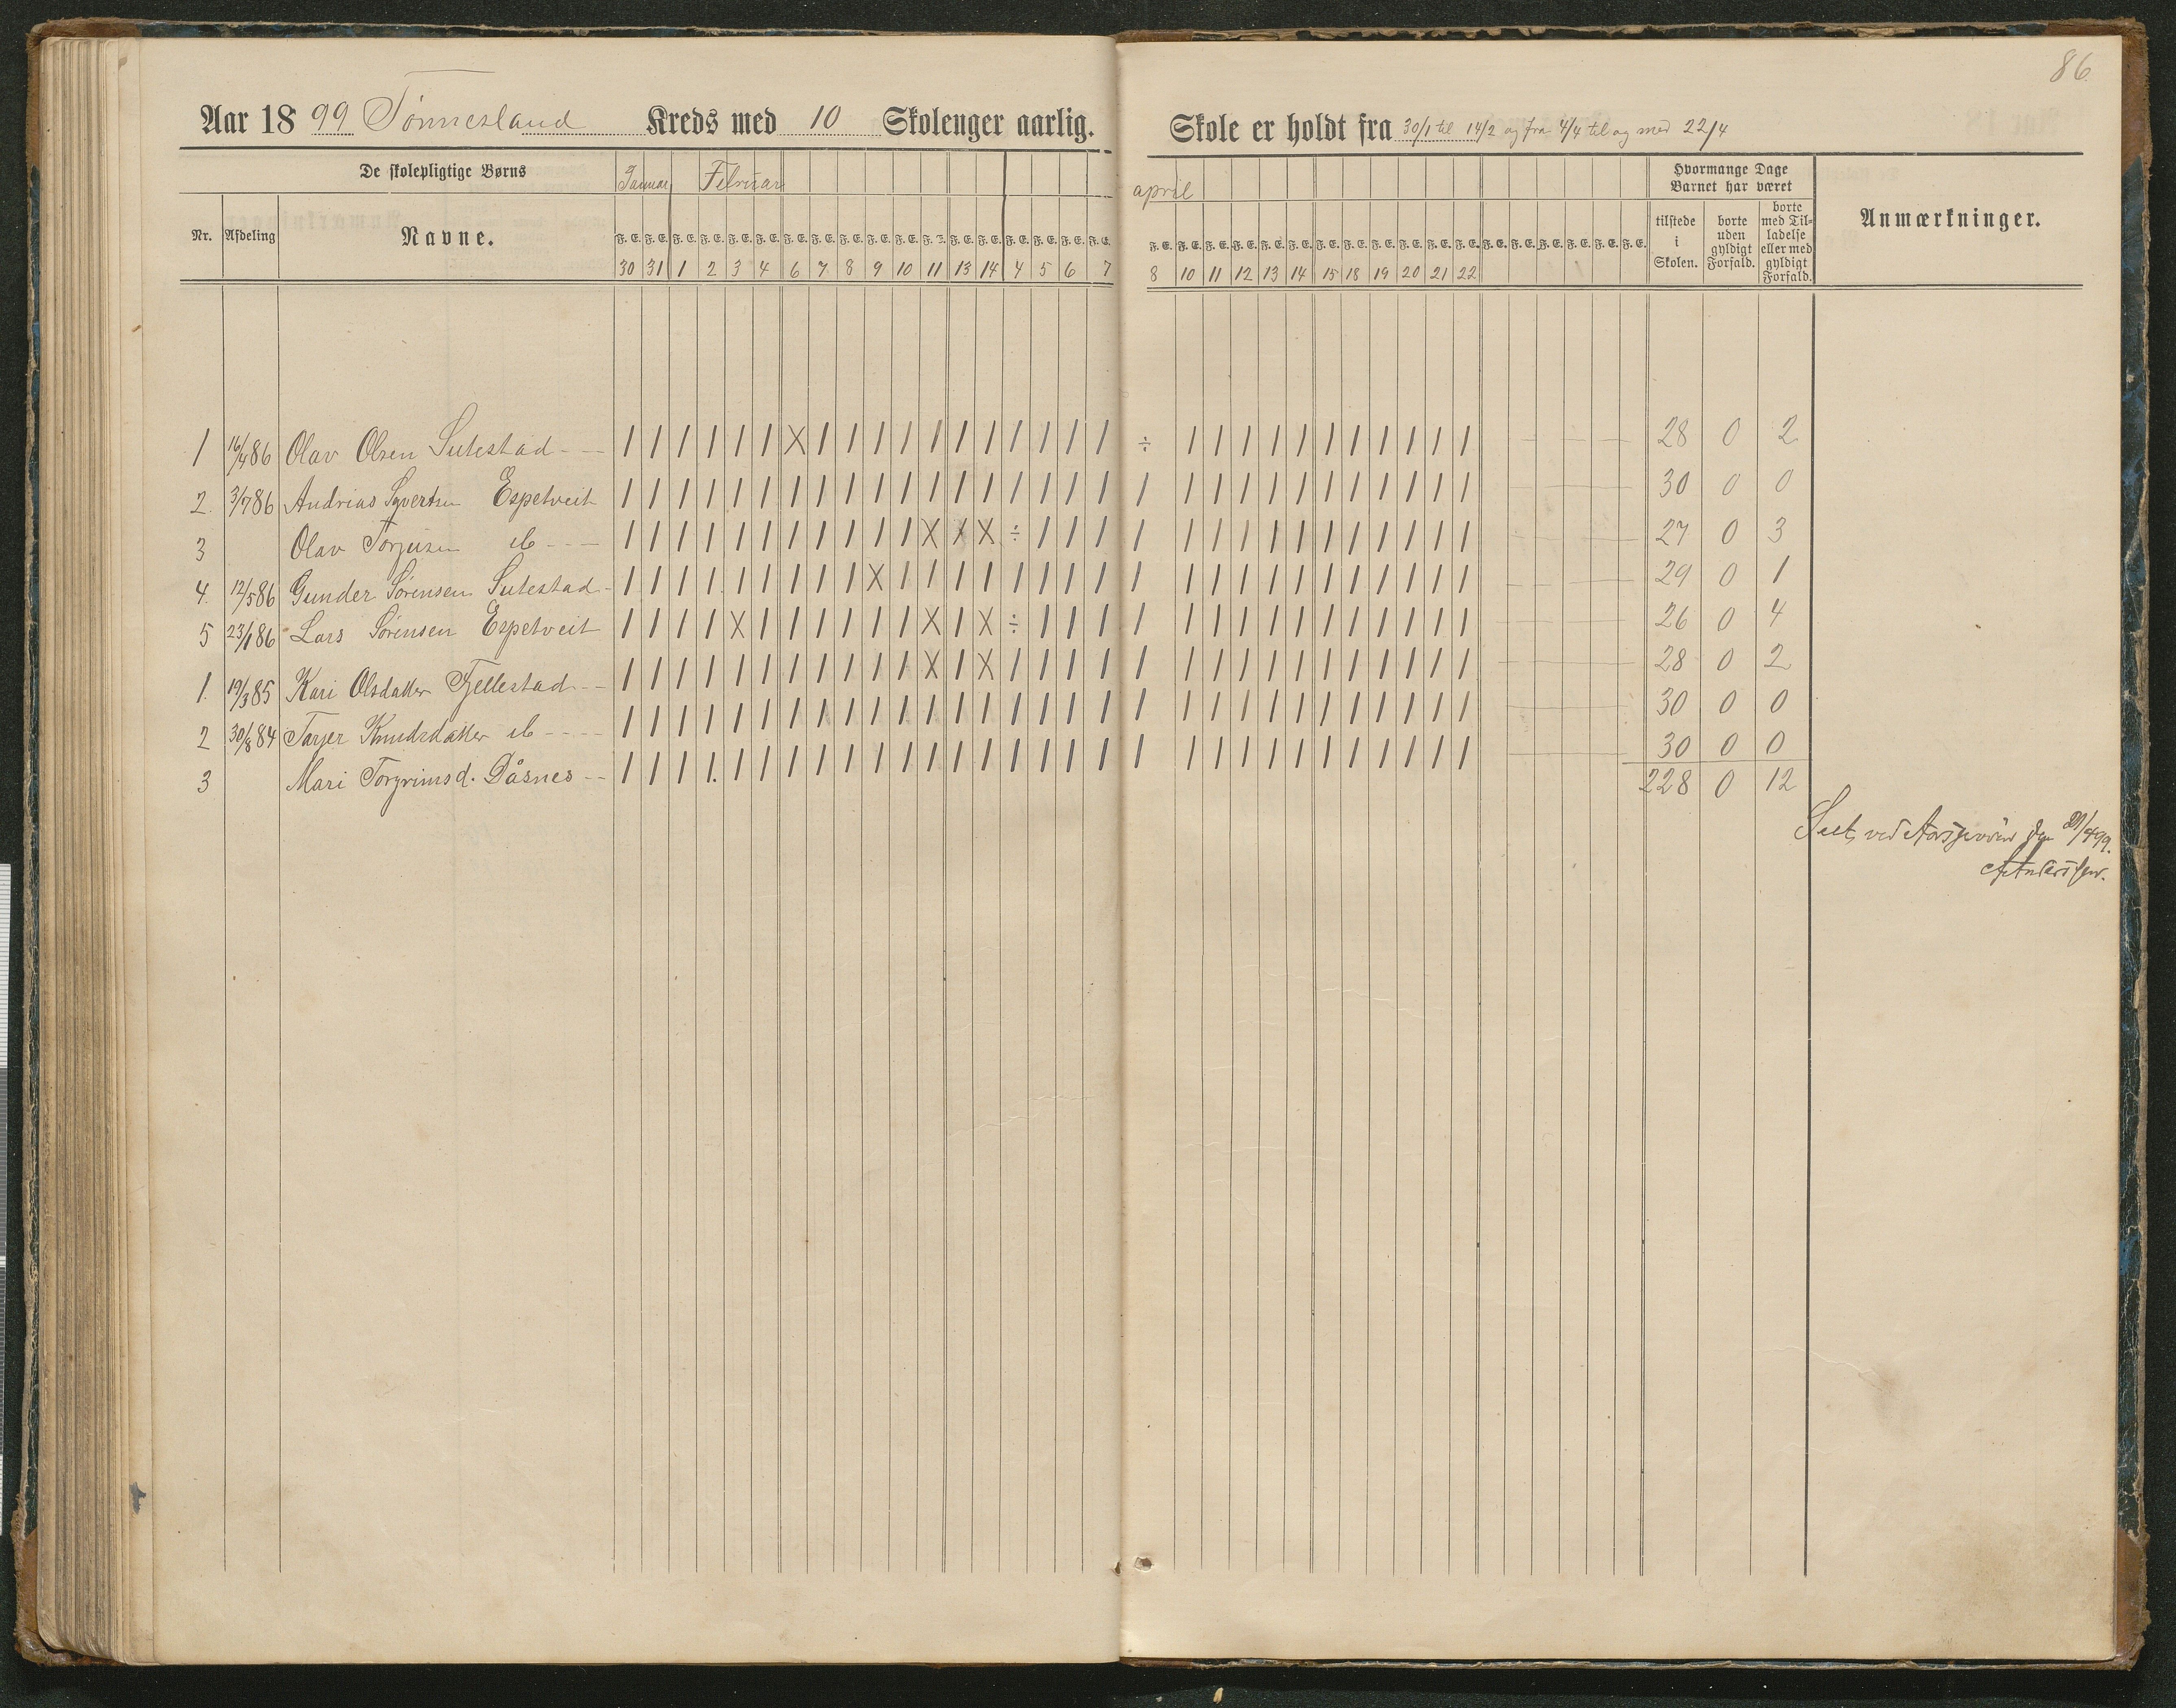 86
Aar 1899 Tønnesland Kreds med 10 Skoleuger aarlig.
Skole er holdt fra 30/1 til 14/2 og fra 4/4 til og med 22/4
De skolepligtige Børns Januar Februar
april
Hvormange Dage Barnet har været
Nr. Afdeling Navne.
F. E. F. E. F. E. F. E. F. E. F. E. F. E. F. E. F. E. F. E. F. E. F. E. F. E. F. E. F. E. F. E. F. E. F. E.
F. E. F. E. F. E. F. E. F. E. F. E. F. E. F. E. F. E. F. E. F. E. F. E. F. E. F. E. F. E. F. E. F. E. F. E.
tilstede i Skolen.
borte uden gyldigt Forfald.
borte med Tilladelse eller med gyldigt Forfald.
Anmærkninger.
30 31 1 2 3 4 6 7 8 9 10 11 13 14 4 5 6 7
8 10 11 12 13 14 15 18 19 20 21 22
1 16/4 86 Olav Olsen Sutestad / / / / / / X / / / / / / / / / / / ÷ / / / / / / / / / / / 28 0 2
2. 3/7 86 Andrias Syvertsen Espetveit / / / / / / / / / / / / / / / / / / / / / / / / / / / / / / 30 0 0
3 Olav Torjusen ib / / / / / / / / / / / X X X ÷ / / / / / / / / / / / / / / / 27 0 3
4. 12/5 86 Gunder Sørensen Sutestad / / / / / / / / / X / / / / / / / / / / / / / / / / / / / / 29 0 1
5 23/1 86 Lars Sørensen Espetveit / / / / X / / / / / / X / X ÷ / / / / / / / / / / / / / / / 26 0 4
1. 19/3 85 Kari Olsdatter Fjellestad / / / / / / / / / / / X / X / / / / / / / / / / / / / / / / 28 0 2
2 30/8 84 Tarjer Knudsdatter ib / / / / / / / / / / / / / / / / / / / / / / / / / / / / / / 30 0 0
3 Mari Torgrimsd. Dåsnes / / / / / / / / / / / / / / / / / / / / / / / / / / / / / / 30 0 0
228 0 12
Seet ved den /4 99.